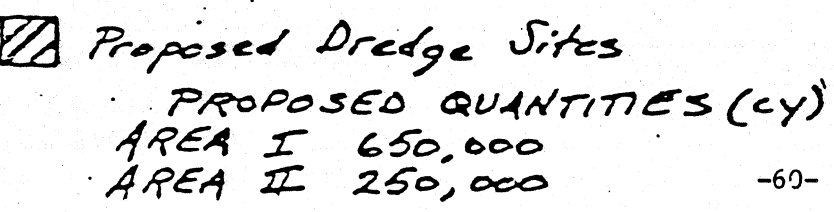 Proposed Dredge Sites
PROPOSED QUANTITIES (cy)
AREA I 650,000
AREA II 250,000 -60-